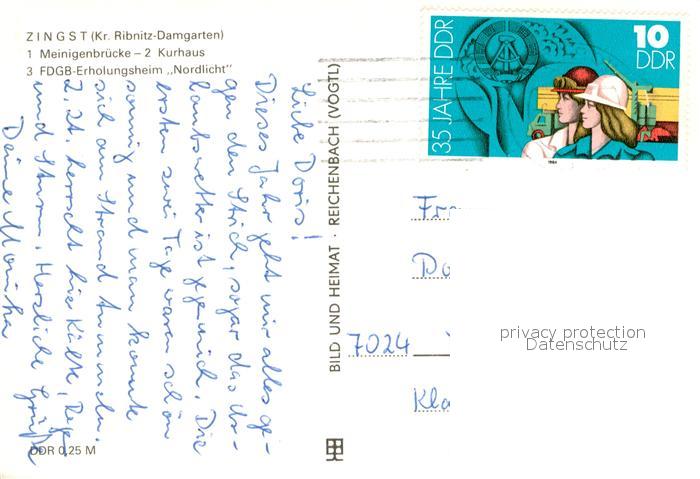 ZINGST (Kr. Ribnitz-Damgarten)
1 Meinigenbrücke – 2 Kurhaus
3 FDGB-Erholungsheim „Nordlicht"
Liebe Doris!
Dieses Jahr geht mir alles ge-
gen den Strich, sogar das Ur-
laubswetter ist gemein. Die
ersten zwei Tage waren schön
sonnig und man konnte
sich am Strand tummeln.
Z. Zt. herrscht hier Kälte, Regen
und Sturm. Herzliche Grüße
Deine Monika
DDR 0,25 M
BILD UND HEIMAT · REICHENBACH (VOGTL)
35 JAHRE DDR
10
DDR
1984
7024
privacy protection
Datenschutz